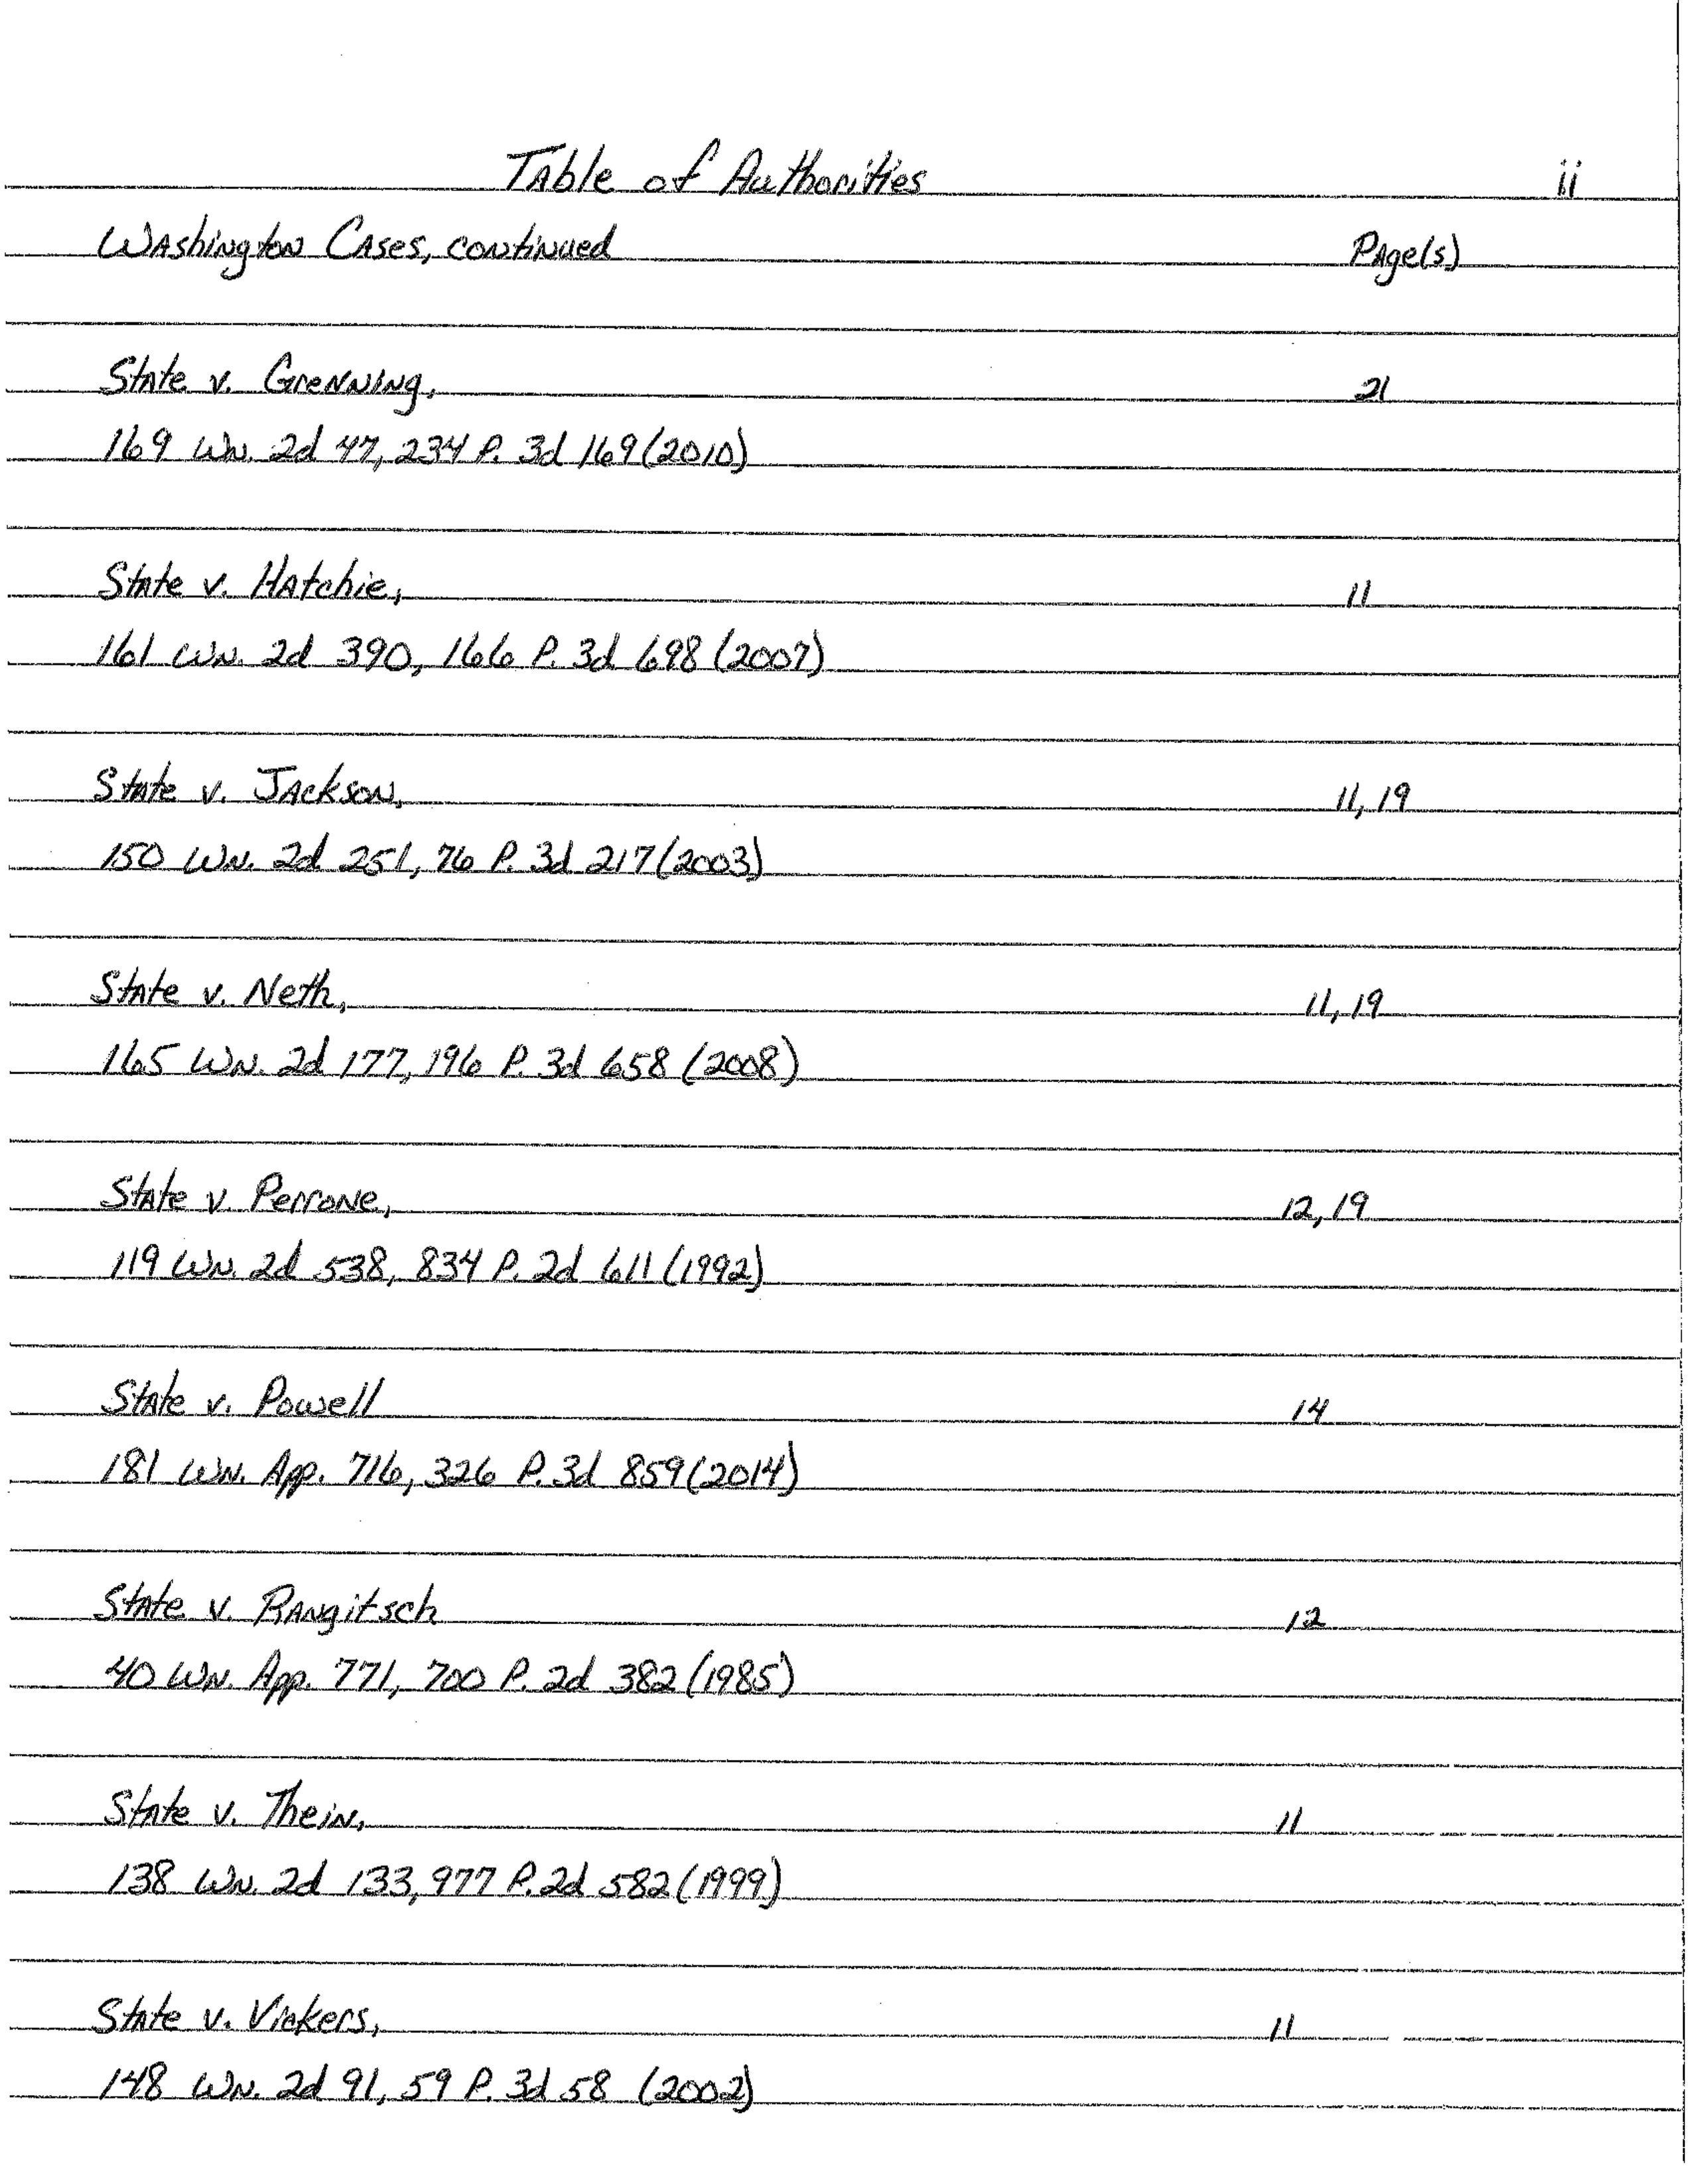 Table of Authorities ii
Washington Cases, continued Page(s)
State v. Grenning, 21
169 Wn. 2d 47, 234 P. 3d 169 (2010)
State v. Hatchie, 11
161 Wn. 2d 390, 166 P. 3d 698 (2007)
State v. Jackson, 11, 19
150 Wn. 2d 251, 76 P. 3d 217 (2003)
State v. Neth, 11, 19
165 Wn. 2d 177, 196 P. 3d 658 (2008)
State v. Perrone, 12, 19
119 Wn. 2d 538, 834 P. 2d 611 (1992)
State v. Powell 14
181 Wn. App. 716, 326 P. 3d 859 (2014)
State v. Rangitsch 12
40 Wn. App. 771, 700 P. 2d 382 (1985)
State v. Thein, 11
138 Wn. 2d 133, 977 P. 2d 582 (1999)
State v. Vickers, 11
148 Wn. 2d 91, 59 P. 3d 58 (2002)